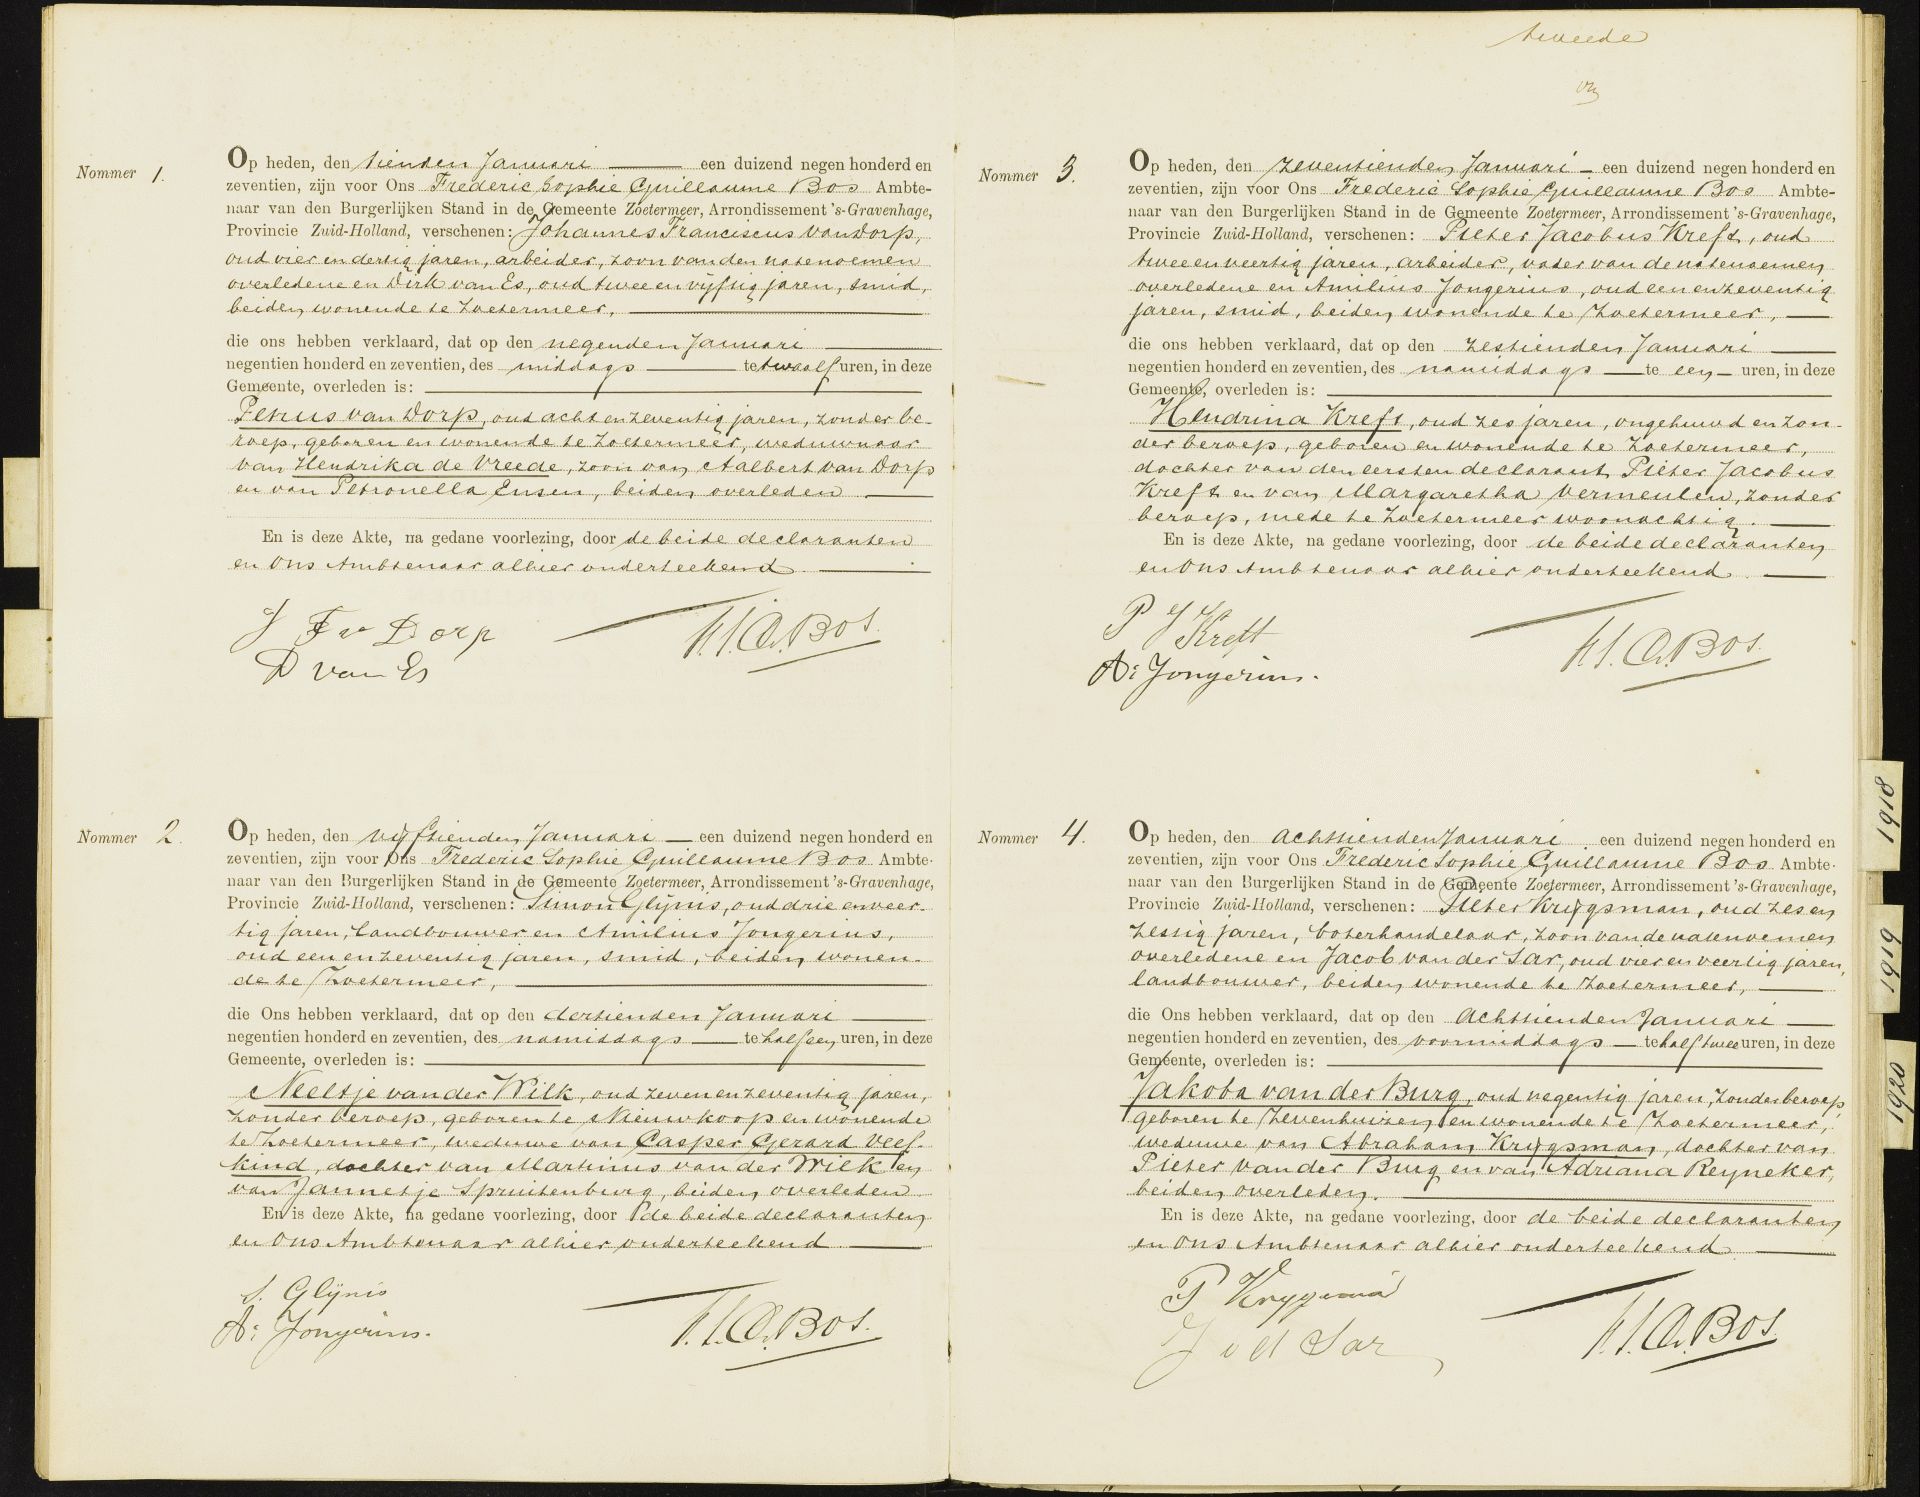 Nommer 1.
Op heden, den tienden Januari een duizend negen honderd en
zeventien, zijn voor Ons Frederic Sophie Guillaume Bos Ambte-
naar van den Burgerlijken Stand in de Gemeente Zoetermeer, Arrondissement 's-Gravenhage,
Provincie Zuid-Holland, verschenen: Johannes Franciscus van Dorp,
oud vier en dertig jaren, arbeider, zoon van den natenoemen
overledene en Dirk van Es, oud twee en vijftig jaren, smid,
beiden wonende te Zoetermeer,
die ons hebben verklaard, dat op den negenden Januari
negentien honderd en zeventien, des middags te twaalf uren, in deze
Gemeente, overleden is:
Petrus van Dorp, oud acht en zeventig jaren, zonder be-
roep, geboren en wonende te Zoetermeer, weduwnaar
van Hendrika de Vreede, zoon van Aalbert van Dorp
en van Petronella Ensen, beiden overleden
En is deze Akte, na gedane voorlezing, door de beide declaranten
en Ons Ambtenaar alhier onderteekend
J F v Dorp
F.S.G. Bos.
D van Es
Nommer 2.
Op heden, den vijftienden Januari een duizend negen honderd en
zeventien, zijn voor Ons Frederic Sophie Guillaume Bos Ambte-
naar van den Burgerlijken Stand in de Gemeente Zoetermeer, Arrondissement 's-Gravenhage,
Provincie Zuid-Holland, verschenen: Simon Glijnis, oud drie en veer-
tig jaren, landbouwer en Amilius Jongerius,
oud een en zeventig jaren, smid, beiden wonen-
de te Zoetermeer,
die Ons hebben verklaard, dat op den dertienden Januari
negentien honderd en zeventien, des namiddags te half een uren, in deze
Gemeente, overleden is:
Neeltje van der Wilk, oud zeven en zeventig jaren,
zonder beroep, geboren te Nieuwkoop en wonende
te Zoetermeer, weduwe van Casper Gerard Veef-
kind, dochter van Martinus van der Wilk en
van Jannetje Spruitenburg, beiden overleden
En is deze Akte, na gedane voorlezing, door de beide declaranten
en Ons Ambtenaar alhier onderteekend
S. Glijnis
A: Jongerius.
F.S.G. Bos.
tweede
Nommer 3.
Op heden, den zeventienden Januari een duizend negen honderd en
zeventien, zijn voor Ons Frederic Sophie Guillaume Bos Ambte-
naar van den Burgerlijken Stand in de Gemeente Zoetermeer, Arrondissement 's-Gravenhage,
Provincie Zuid-Holland, verschenen: Pieter Jacobus Kreft, oud
twee en veertig jaren, arbeider, vader van de natenoemen
overledene en Amilius Jongerius, oud een en zeventig
jaren, smid, beiden wonende te Zoetermeer,
die ons hebben verklaard, dat op den zestienden Januari
negentien honderd en zeventien, des namiddags te een uren, in deze
Gemeente, overleden is:
Hendrina Kreft, oud zes jaren, ongehuwd en zon-
der beroep, geboren en wonende te Zoetermeer,
dochter van den eersten declarant Pieter Jacobus
Kreft en van Margaretha Vermeulen, zonder
beroep, mede te Zoetermeer woonachtig.
En is deze Akte, na gedane voorlezing, door de beide declaranten
en Ons Ambtenaar alhier onderteekend
P J Kreft
F.S.G. Bos.
A: Jongerius.
Nommer 4.
Op heden, den achttienden Januari een duizend negen honderd en
zeventien, zijn voor Ons Frederic Sophie Guillaume Bos Ambte-
naar van den Burgerlijken Stand in de Gemeente Zoetermeer, Arrondissement 's-Gravenhage,
Provincie Zuid-Holland, verschenen: Pieter Krijgsman, oud zes en
zestig jaren, boterhandelaar, zoon van de natenoemen
overledene en Jacob van der Sar, oud vier en veertig jaren,
landbouwer, beiden wonende te Zoetermeer,
die Ons hebben verklaard, dat op den achttienden Januari
negentien honderd en zeventien, des voormiddags te half twee uren, in deze
Gemeente, overleden is:
Jakoba van der Burg, oud negentig jaren, zonder beroep,
geboren te Zevenhuizen en wonende te Zoetermeer,
weduwe van Abraham Krijgsman, dochter van
Pieter van der Burg en van Adriana Reyneker,
beiden overleden.
En is deze Akte, na gedane voorlezing, door de beide declaranten
en Ons Ambtenaar alhier onderteekend
P Krijgsman
J v d Sar
F.S.G. Bos.
1918
1919
1920